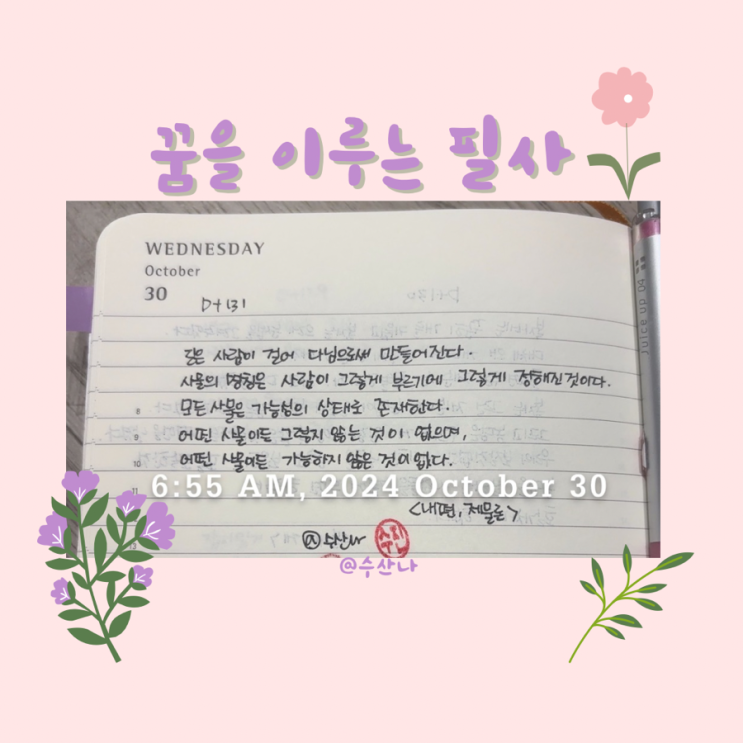 꿈을 이루는 필사
WEDNESDAY
October
30
D+131
길은 사람이 걸어 다님으로써 만들어진다.
사물의 명칭은 사람이 그렇게 부르기에 그렇게 정해진 것이다.
모든 사물은 가능성의 상태로 존재한다.
8
어떤 사물이든 그렇지 않은 것이 없으며,
9
어떤 사물이든 가능하지 않은 것이 없다.
10
11
6:55 AM, 2024 October 30
<내편, 제물론>
@수산나
@수산나
Juice up 04